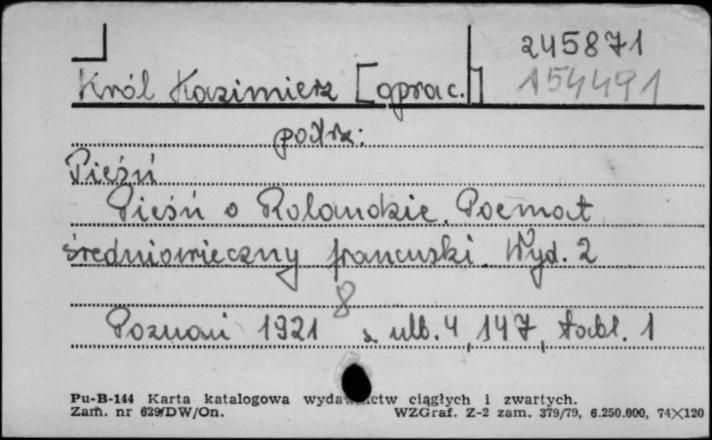 245871
Król Kazimierz [oprac.] 154491
patrz:
Pieśń
Pieśń o Rolandzie. Poemat
średniowieczny francuski. Wyd. 2
8
Poznań 1921 s. ulb. 4, 147, tabl. 1
Pu-B-144 Karta katalogowa wydawnictw ciągłych i zwartych.
Zam. nr 629/DW/On. WZGraf. Z-2 zam. 379/79, 6.250.000, 74×120